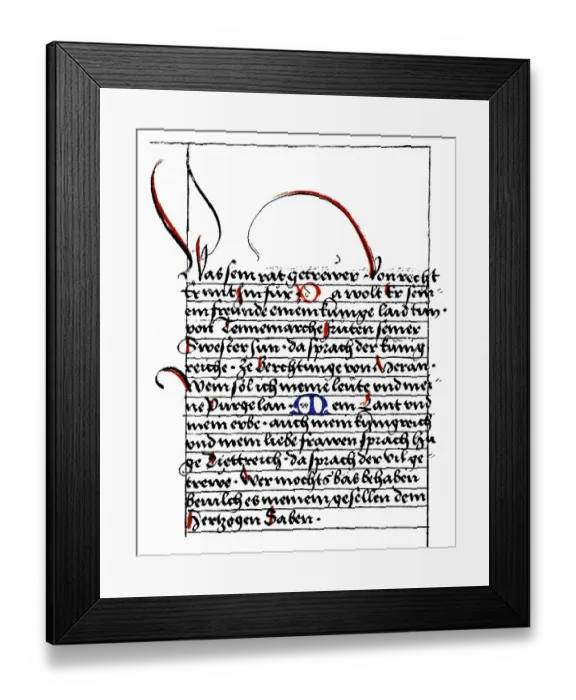 Was sein rat getrewer · Von recht
Er Im für · Da wolt Er sein
ein freunde einem künige laid tun ·
von Tennemarche Fruten seiner
Swester sun · da sprach der künig
reiche · ze Berchtunge von Meran ·
Wem sol ich meine leüte vnd mei
ne Purge lan · Mein Lant vnd
mein erbe · auch mein künigreich
vnd mein liebe frawen sprach Hu
ge Diettreich · da sprach der vil ge
trewe · Wer mochts bas behaben
beuilch es meinem gesellen dem
Hertzogen Saben ·